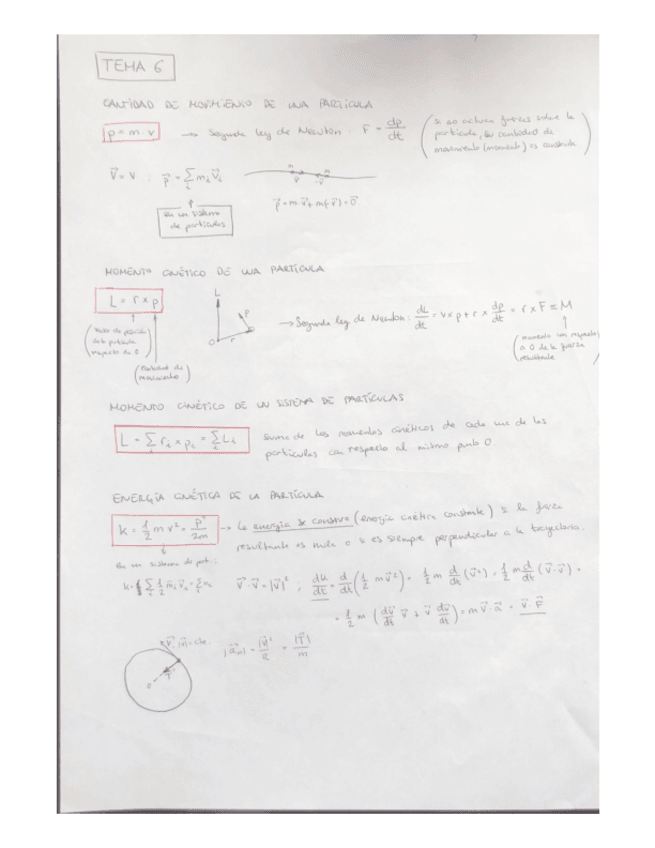 TEMA 6
CANTIDAD DE MOVIMIENTO DE UNA PARTÍCULA
p = m · v → Segunda ley de Newton: F = dp/dt
(si no actúan fuerzas sobre la
partícula, la cantidad de
movimiento (momento) es constante)
V⃗ = v ; p⃗ = Σ mᵢ v⃗ᵢ
p⃗ = m v⃗ + m(-v⃗) = 0⃗
en un sistema
de partículas
MOMENTO CINÉTICO DE UNA PARTÍCULA
L = r × p
L
p
O
r
→ Segunda ley de Newton: dL/dt = v × p + r × dp/dt = r × F = M
(vector de posición
de la partícula
respecto de O)
(cantidad de
movimiento)
(momento con respecto
a O de la fuerza
resultante)
MOMENTO CINÉTICO DE UN SISTEMA DE PARTÍCULAS
L = Σ rᵢ × pᵢ = Σ Lᵢ
suma de los momentos cinéticos de cada una de las
partículas con respecto al mismo punto O
ENERGÍA CINÉTICA DE LA PARTÍCULA
k = 1/2 m v² = p²/2m → La energía se conserva (energía cinética constante) si la fuerza
resultante es nula o si es siempre perpendicular a la trayectoria.
En un sistema de part.:
v⃗ · v⃗ = |v⃗|² ; dk/dt = d/dt (1/2 m v⃗²) = 1/2 m d/dt (v⃗²) = 1/2 m d/dt (v⃗ · v⃗) =
= 1/2 m (dv⃗/dt v⃗ + v⃗ dv⃗/dt) = m v⃗ · a⃗ = v⃗ · F⃗
|a⃗ₙ| = |v⃗|²/R = |T⃗|/m